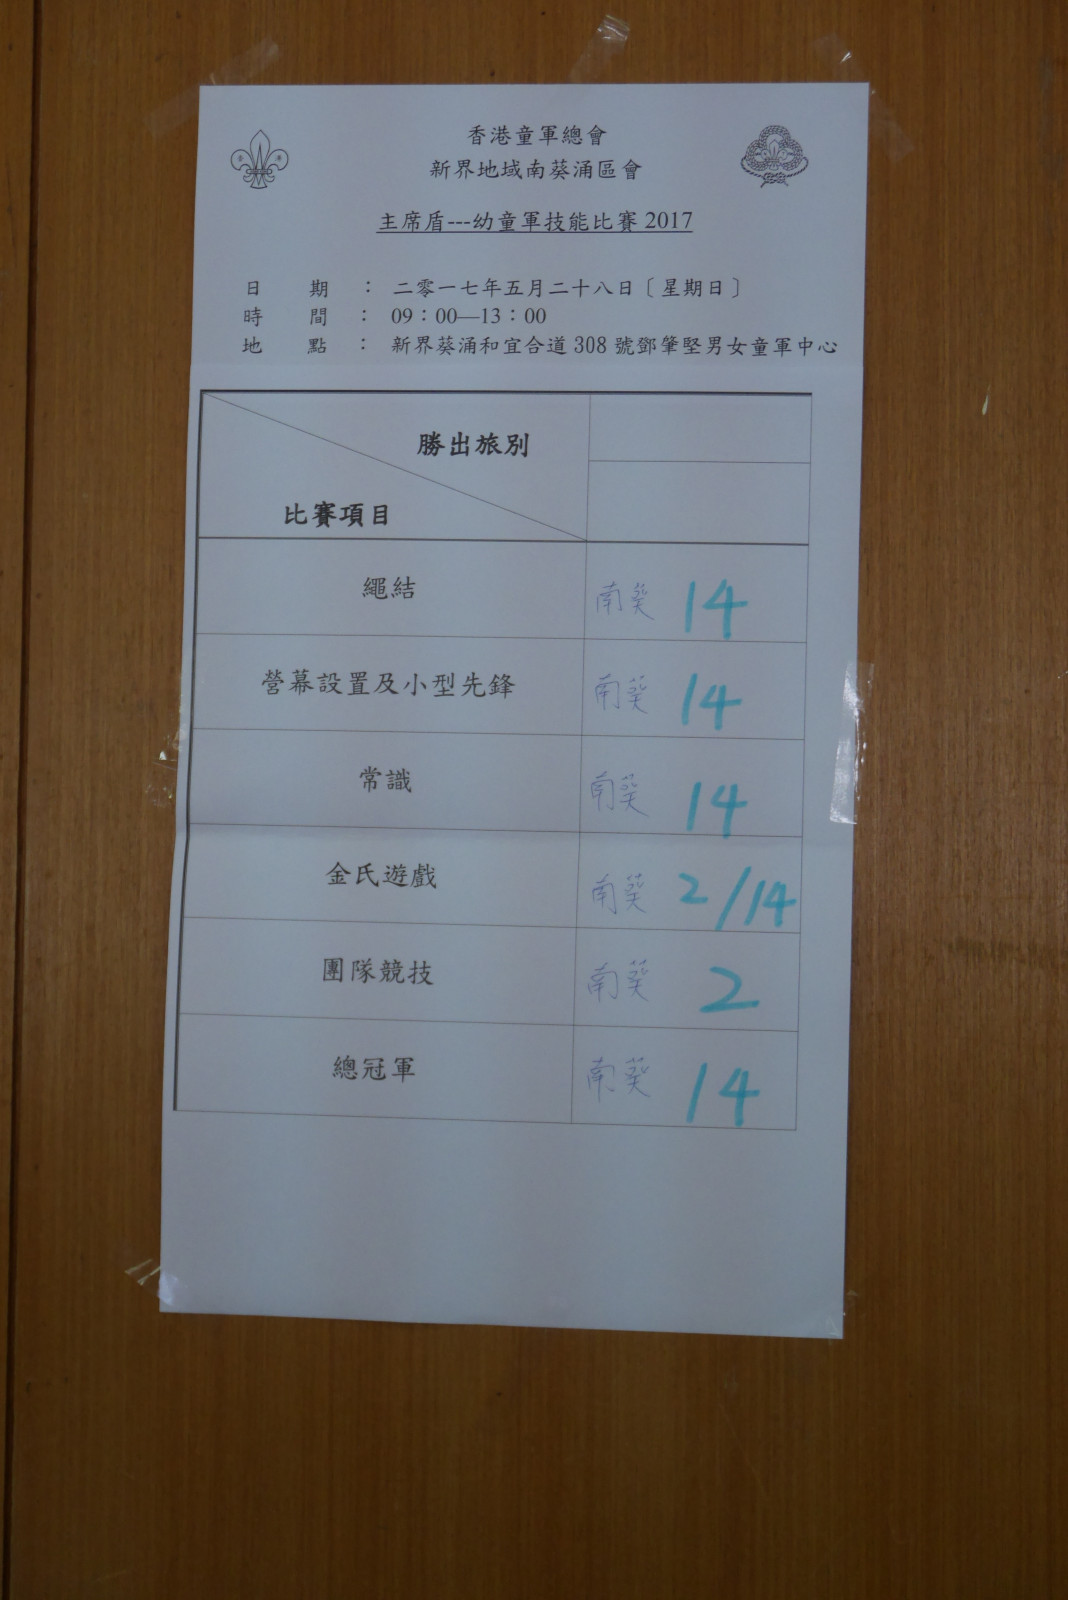 香港童軍總會
新界地域南葵涌區會
主席盾---幼童軍技能比賽 2017
日 期 ： 二零一七年五月二十八日〔星期日〕
時 間 ： 09：00—13：00
地 點 ： 新界葵涌和宜合道 308 號鄧肇堅男女童軍中心
勝出旅別
比賽項目
繩結 南葵 14
營幕設置及小型先鋒 南葵 14
常識 南葵 14
金氏遊戲 南葵 2/14
團隊競技 南葵 2
總冠軍 南葵 14